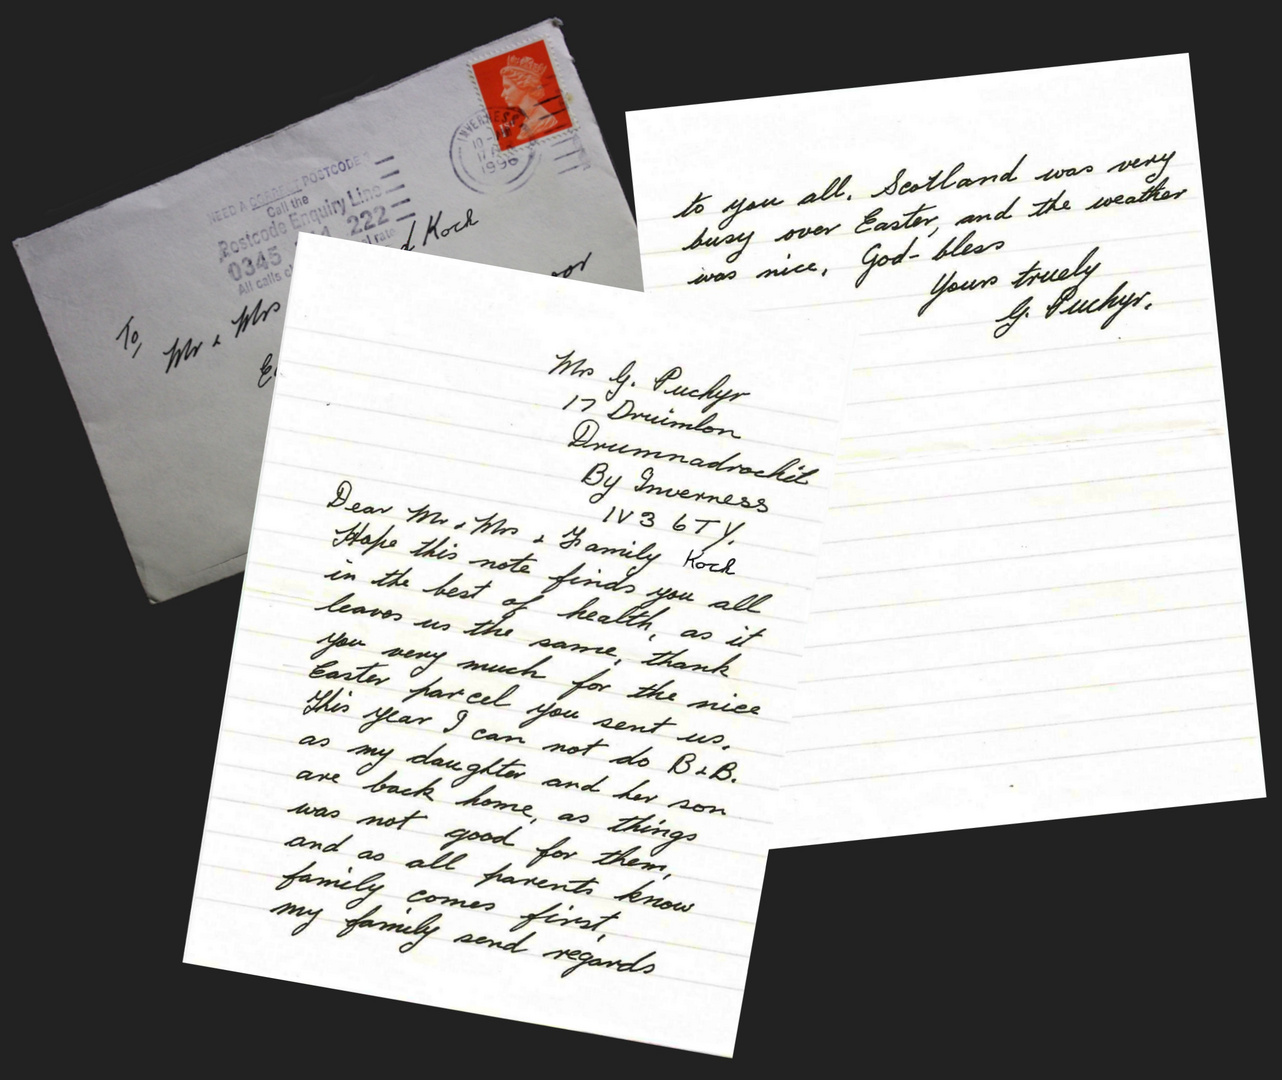 NEED A CORRECT POSTCODE?
Call the
Postcode Enquiry Line
0345 222
All calls
INVERNESS
10-
17
1996
To,
Mr & Mrs Kock
Mrs G. Puchyr
17 Druimlon
Drumnadrochit
By Inverness
IV3 6TY.
Dear Mr & Mrs & Family Kock
Hope this note finds you all
in the best of health, as it
leaves us the same, thank
you very much for the nice
Easter parcel you sent us.
This year I can not do B&B.
as my daughter and her son
are back home, as things
was not good for them,
and as all parents know
family comes first,
my family send regards
to you all. Scotland was very
busy over Easter, and the weather
was nice. God-bless
Yours truely
G. Puchyr.